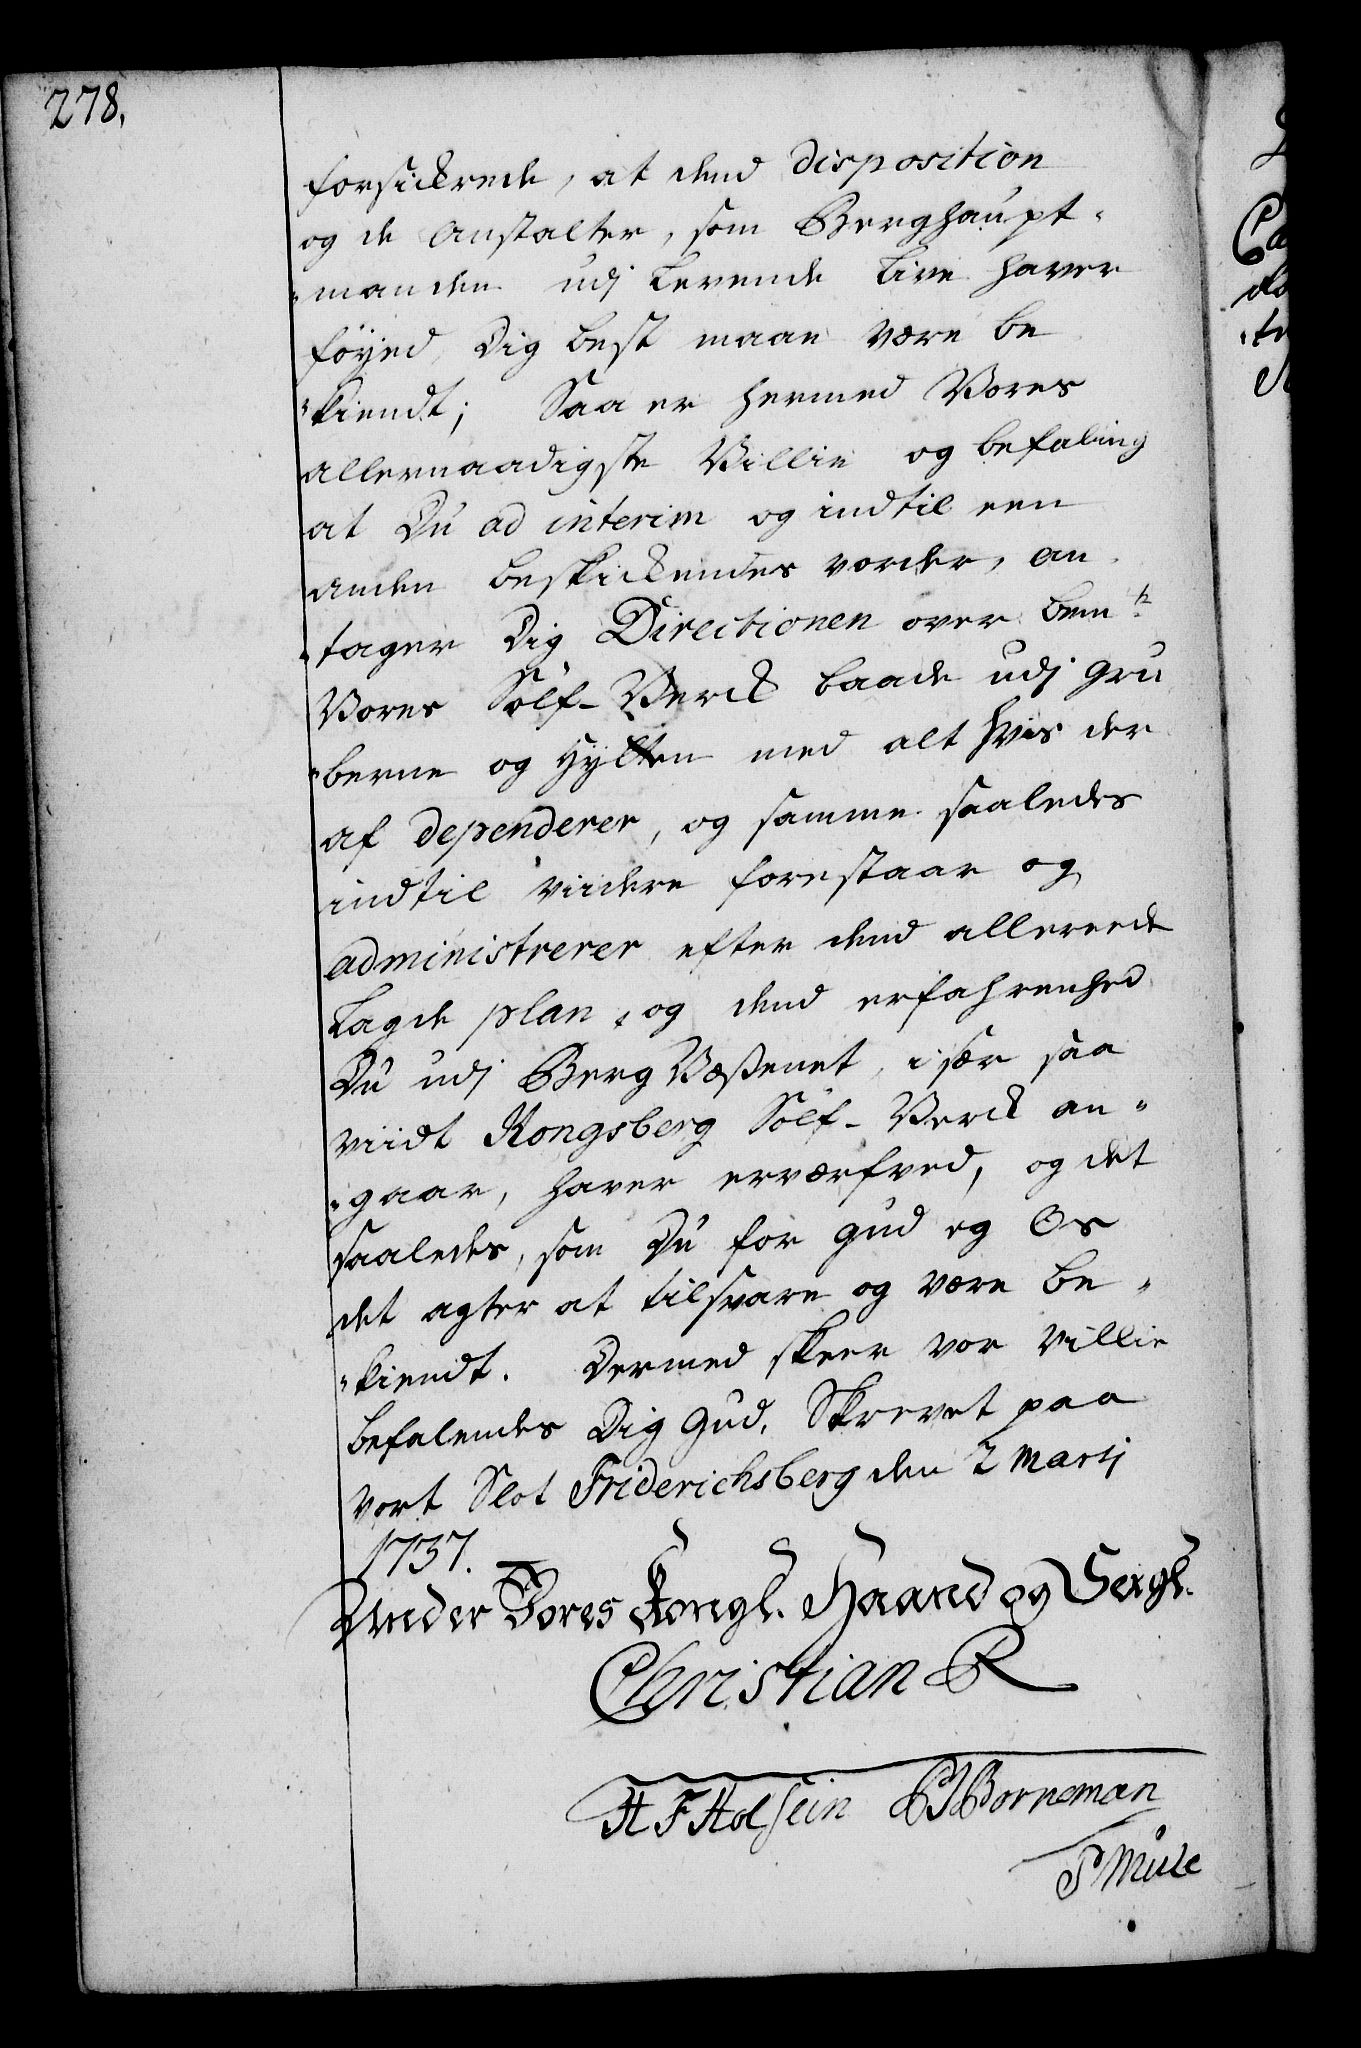 278.
forsickrede, at dend disposition
og de Anstalter, som Berghaupt-
"manden udj Levende Live haver
föyed, Dig best maae være be
"kiendt; Saa er hermed Vores
allernaadigste Villie og befaling
at Du ad interim og indtil een
anden beskickendes vorder, an
"tager Dig Directionen over bemte
Vores Sölf-Verck baade udj gru
"berne og Hytten med alt hvis der
af dependerer, og samme saaledes
indtil viidere forestaar og
administrerer efter dend allereede
Lagde plan, og dend erfahrenhed
Du udj Berg Væßenet, i sær saa
viidt Kongsberg Sölf-Verck an-
"gaar, haver erværfved, og det
saaledes, som Du for gud og Os
det agter at tilsvare og være be-
"kiendt. Dermed skeer vor Villie
befalendes Dig Gud. Skrevet paa
vort Slot Friderichsberg den 2 Martj
1737.
Under Vores Kongl. Haand og Seigl.
Christian R
H F Holstein P J Borneman
P Mule